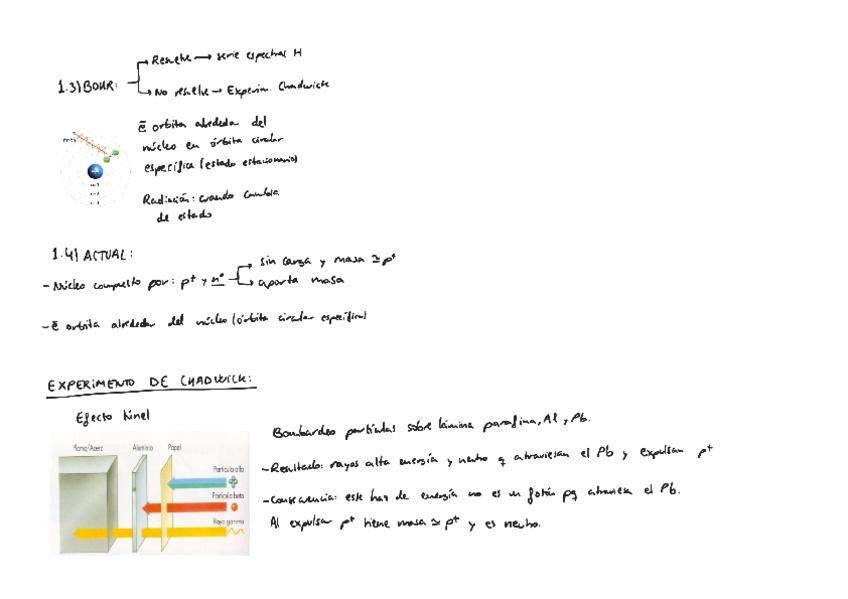 Resuelve → serie espectral H
1.3) BOHR:
No resuelve → Experim. Chadwick
ē orbita alrededor del
núcleo en órbita circular
específica (estado estacionario)
Radiación: cuando cambia
de estado
1.4) ACTUAL:
sin carga y masa ≃ p⁺
- Núcleo compuesto por: p⁺ y n°
aporta masa
- ē orbita alrededor del núcleo (órbita circular específica)
EXPERIMENTO DE CHADWICK:
Efecto túnel
Bombardeo partículas sobre lámina parafina, Al y Pb.
Plomo/Acero Aluminio Papel
- Resultado: rayos alta energía y neutro q atraviesan el Pb y expulsan p⁺
Partícula alfa
- Consecuencia: este haz de energía no es un fotón pq atraviesa el Pb.
Partícula beta
Al expulsar p⁺ tiene masa ≃ p⁺ y es neutro.
Rayo gamma